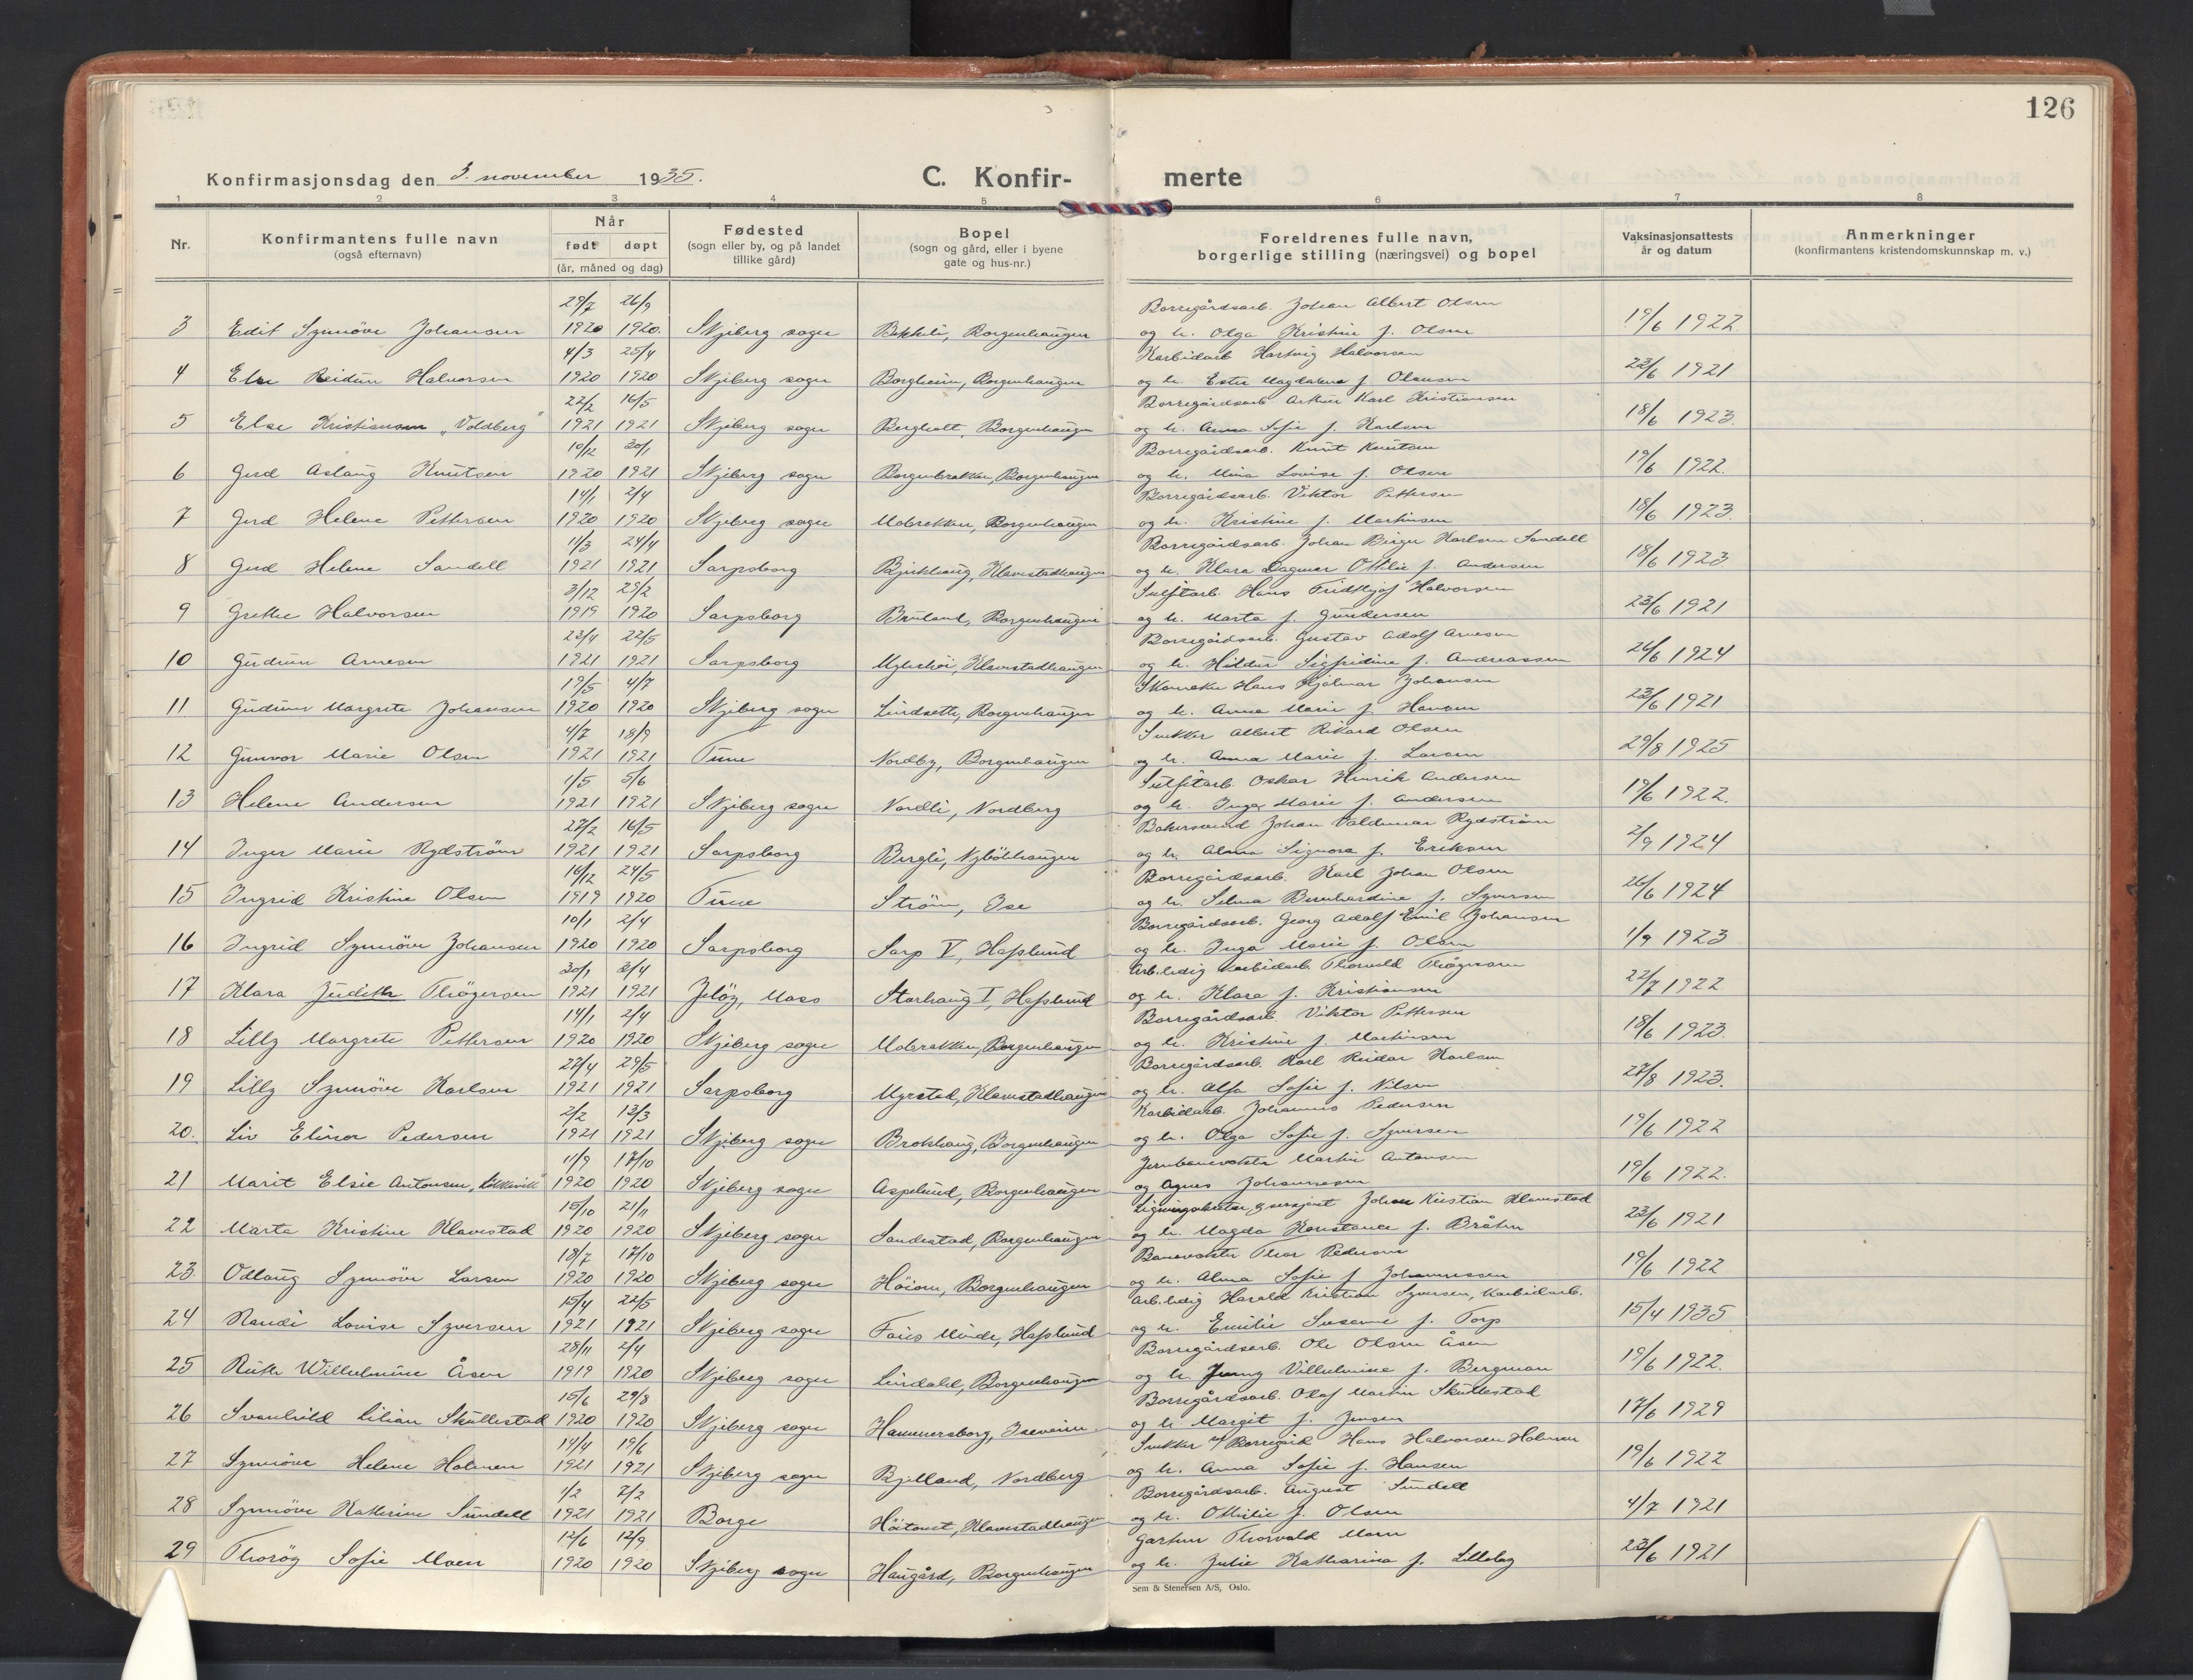 126
Konfirmasjonsdag den 3. november 1935.
C. Konfir- merte
1 2 3 4 5 6 7 8
Nr.
Konfirmantens fulle navn
(også efternavn)
Når
født døpt
(år, måned og dag)
Fødested
(sogn eller by, og på landet
tillike gård)
Bopel
(sogn og gård, eller i byene
gate og hus-nr.)
Foreldrenes fulle navn,
borgerlige stilling (næringsvei) og bopel
Vaksinasjonsattests
år og datum
Anmerkninger
(konfirmantens kristendomskunnskap m. v.)
29/7 26/9 Borregårdsarb. Johan Albert Olsen
3 Edit Synnöve Johansen 1920 1920. Skjeberg sogn Bekkeli, Borgenhaugen og h. Olga Kristine f. Olsen 19/6 1922.
4/3 25/4 Karbidarb Hartvig Halvorsen
4 Else Reidun Halvorsen 1920 1920 Skjeberg sogn Borgheim, Borgenhaugen og h. Ester Magdalena f. Olausen 23/6 1921
22/2 16/5 Borregårdsarb Arthur Karl Kristiansen
5 Else Kristiansen "Voldberg" 1921 1921 Skjeberg sogn Bergholt, Borgenhaugen og h. Anna Sofie f. Karlsen 18/6 1923.
10/12 30/1 Borregårdsarb. Knut Knutsen
6 Gerd Aslaug Knutsen 1920 1921 Skjeberg sogn Borgenbrakken, Borgenhaugen og h. Mina Lovise f. Olsen 19/6 1922.
14/1 2/4 Borregårdsarb. Viktor Pettersen
7 Gerd Helene Pettersen 1920 1920 Skjeberg sogn Mobrakken, Borgenhaugen og h. Kristine f. Martinsen 18/6 1923.
11/3 24/4 Borregårdsarb. Johan Birger Karlsen Sandell
8 Gerd Helene Sandell 1921 1921 Sarpsborg Bjerkhaug, Klavestadhaugen og h. Klara Dagmar Otilie f. Andersen 18/6 1923.
3/12 29/2 Sulfitarb. Hans Fridtjof Halvorsen
9 Grethe Halvorsen 1919 1920 Sarpsborg Bruland, Borgenhaugen og h. Marta f. Gundersen 23/6 1921
23/4 22/5 Borregårdsarb. Gustav Adolf Arnesen
10 Gudrun Arnesen 1921 1921 Sarpsborg Myrskoi, Klavestadhaugen og h. Hildur Sigfridine f. Andreassen 26/6 1924
19/5 4/7 Skomaker Hans Hjalmar Johansen
11 Gudrun Margrete Johansen 1920 1920 Skjeberg sogn Lundsette, Borgenhaugen og h. Anna Marie f. Hansen 23/6 1921
4/7 18/9 Snekker Albert Rikard Olsen
12 Gunvor Marie Olsen 1921 1921 Tune Nordby, Borgenhaugen og h. Anna Marie f. Larsen 29/8 1925
1/5 5/6 Sulfitarb. Oskar Henrik Andersen
13 Helene Andersen 1921 1921 Skjeberg sogn Nordli, Nordberg og h. Inga Marie f. Andersen 19/6 1922.
27/2 16/5 Bakersvend Johan Valdemar Rydström
14 Inger Marie Rydström 1921 1921 Sarpsborg Bergli, Nybölhaugen og h. Alma Signora f. Eriksen 2/9 1924
16/12 24/5 Borregårdsarb. Karl Johan Olsen
15 Ingrid Kristine Olsen 1919 1920 Tune Ström, Ise og h. Selma Bernhardine f. Syversen 26/6 1924
10/1 2/4 Borregårdsarb. Georg Adolf Emil Johansen
16 Ingrid Synnöve Johansen 1920 1920 Sarpsborg Sarp V, Hafslund og h. Inga Marie f. Olsen 1/9 1923
30/1 3/4 Arb.ledig karbidarb Thorvald Thögersen
17 Klara Judith Thögersen 1921 1921 Jelöy, Moss Storhaug I, Hafslund og h. Klara f. Kristiansen 22/7 1922
14/1 2/4 Borregårdsarb. Viktor Pettersen
18 Lilly Margrete Pettersen 1920 1920 Skjeberg sogn Mobrakken, Borgenhaugen og h. Kristine f. Martinsen 18/6 1923.
27/4 29/5 Borregårdsarb. Karl Reidar Karlsen
19 Lilly Synnöve Karlsen 1921 1921 Sarpsborg Myrstad, Klavestadhaugen og h. Alfa Sofie f. Nilsen 27/8 1923.
2/2 13/3 Karbidarb. Johannes Pedersen
20. Liv Elinor Pedersen 1921 1921 Skjeberg sogn Brokhaug, Borgenhaugen og h. Olga Sofie f. Syversen 19/6 1922
11/9 17/10 Jernbanevokter Martin Antonsen
21 Marit Elsie Antonsen 1920 1920 Skjeberg sogn Aspelund, Borgenhaugen og Agnes Johannesen 19/6 1922.
15/10 21/11 Ligningssekretær og sersjant Johan Kristian Klavestad
22 Marta Kristine Klavestad 1920 1920 Skjeberg sogn Sandestad, Borgenhaugen og h. Magda Konstance f. Bråten 23/6 1921
18/7 17/10 Banevokter Thor Pedersen
23. Odlaug Synnöve Larsen 1920 1920 Skjeberg sogn Höiom, Borgenhaugen og h. Alma Sofie f. Johannessen 19/6 1922
15/4 22/5 Arb.ledig Harald Kristian Syversen, karbidarb.
24 Randi Lovise Syversen 1921 1921 Skjeberg sogn Fars Minde, Hafslund og h. Emilie Susanne f. Torp 15/4 1935
28/11 2/4 Borregårdsarb. Ole Olsen Åsen
25 Ruth Wilhelmine Åsen 1919 1920 Skjeberg sogn Lindahl, Borgenhaugen og h. Jenny Vilhelmine f. Bergman 19/6 1922.
15/6 29/8 Borregårdsarb. Olaf Martin Skullestad
26 Svanhild Lilian Skullestad 1920 1920 Skjeberg sogn Hammersborg, Iseveien og h. Margit f. Jensen 17/6 1929
14/4 19/6 Snekker v/ Borregård Hans Halvorsen Holmen
27 Synnöve Helene Holmen 1921 1921 Skjeberg sogn Bjelland, Nordberg og h. Anna Sofie f. Hansen 19/6 1922
1/2 7/2 Borregårdsarb. August Sundell
28 Synnöve Katherine Sundell 1921 1921 Borge Höitomt, Klavestadhaugen og h. Othilie f. Olsen 4/7 1921
12/6 12/9 Gartner Thorvald Moen
29 Thoröy Sofie Moen 1920 1920 Skjeberg sogn Haugård, Borgenhaugen og h. Julie Katharina f. Lilleby 23/6 1921
Sem & Stenersen A/S, Oslo.